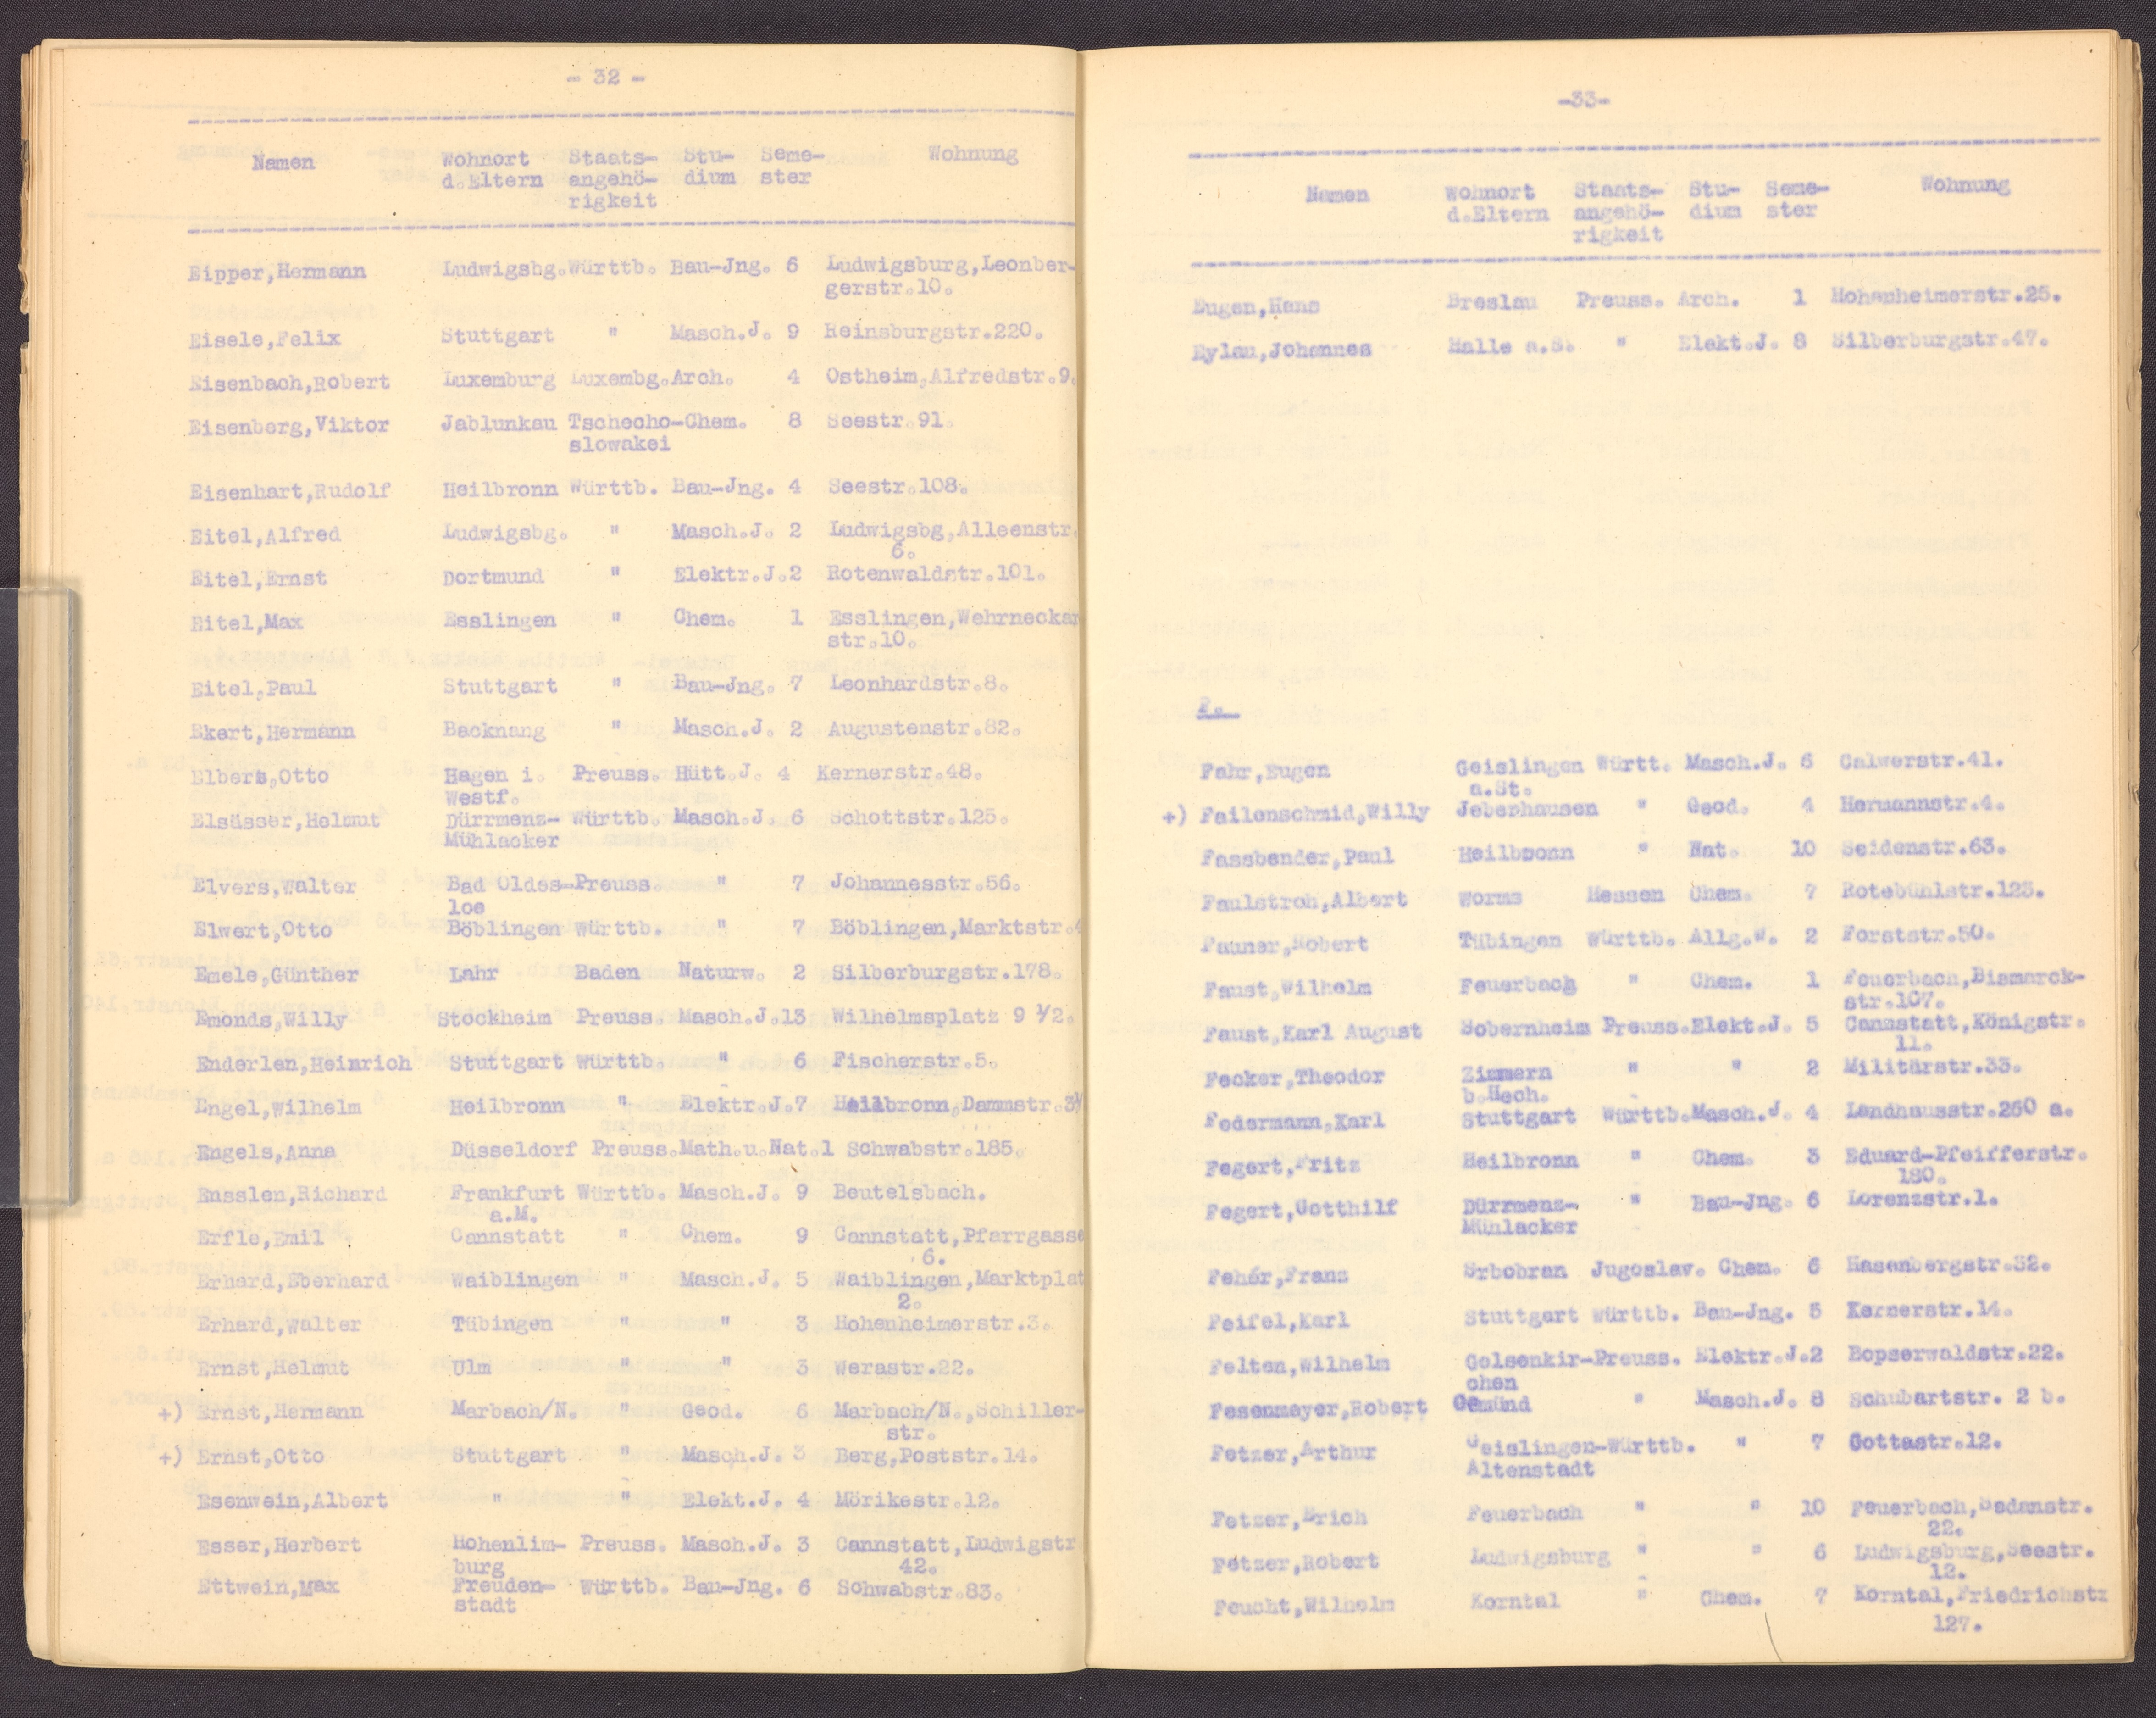 - 32 -
Namen Wohnort Staats- Stu- Seme- Wohnung
d.Eltern angehö- dium ster
rigkeit
Eipper,Hermann Ludwigsbg.Württb. Bau-Jng. 6 Ludwigsburg,Leonber-
gerstr.10.
Eisele,Felix Stuttgart " Masch.J. 9 Reinsburgstr.220.
Eisenbach,Robert Luxemburg Luxembg.Arch. 4 Ostheim,Alfredstr.9.
Eisenberg,Viktor Jablunkau Tschecho-Chem. 8 Seestr.91.
slowakei
Eisenhart,Rudolf Heilbronn Württb. Bau-Jng. 4 Seestr.108.
Eitel,Alfred Ludwigsbg. " Masch.J. 2 Ludwigsbg,Alleenstr.
6.
Eitel,Ernst Dortmund " Elektr.J.2 Rotenwaldstr.101.
Eitel,Max Esslingen " Chem. 1 Esslingen,Wehrneckar
str.10.
Eitel,Paul Stuttgart " Bau-Jng. 7 Leonhardstr.8.
Ekert,Hermann Backnang " Masch.J. 2 Augustenstr.82.
Elbers,Otto Hagen i. Preuss. Hütt.J. 4 Kernerstr.48.
Westf.
Elsässer,Helmut Dürrmenz- Württb. Masch.J. 6 Schottstr.125.
Mühlacker
Elvers,Walter Bad Oldes-Preuss. " 7 Johannesstr.56.
loe
Elwert,Otto Böblingen Württb. " 7 Böblingen,Marktstr.4
Emele,Günther Lahr Baden Naturw. 2 Silberburgstr.178.
Emonds,Willy Stockheim Preuss. Masch.J.13 Wilhelmsplatz 9 1/2.
Enderlen,Heinrich Stuttgart Württb. " 6 Fischerstr.5.
Engel,Wilhelm Heilbronn " Elektr.J.7 Heilbronn,Dammstr.3
Engels,Anna Düsseldorf Preuss.Math.u.Nat.1 Schwabstr.185.
Ensslen,Richard Frankfurt Württb. Masch.J. 9 Beutelsbach.
a.M.
Erfle,Emil Cannstatt " Chem. 9 Cannstatt,Pfarrgasse
6.
Erhard,Eberhard Waiblingen " Masch.J. 5 Waiblingen,Marktplat
2.
Erhard,Walter Tübingen " " 3 Hohenheimerstr.3.
Ernst,Helmut Ulm " " 3 Werastr.22.
+) Ernst,Hermann Marbach/N. " Geod. 6 Marbach/N.,Schiller-
str.
+) Ernst,Otto Stuttgart " Masch.J. 3 Berg,Poststr.14.
Esenwein,Albert " " Elekt.J. 4 Mörikestr.12.
Esser,Herbert Hohenlim- Preuss. Masch.J. 3 Cannstatt,Ludwigstr
burg 42.
Ettwein,Max Freuden- Württb. Bau-Jng. 6 Schwabstr.83.
stadt
-33-
Namen Wohnort Staats- Stu- Seme- Wohnung
d.Eltern angehö- dium ster
rigkeit
Eugen,Hans Breslau Preuss. Arch. 1 Hohenheimerstr.25.
Eylau,Johannes Halle a.S. " Elekt.J. 8 Silberburgstr.47.
F.
Fahr,Eugen Geislingen Württ. Masch.J. 6 Calwerstr.41.
a.St.
+) Failenschmid,Willy Jebenhausen " Geod. 4 Hermannstr.4.
Fassbender,Paul Heilbronn " Nat. 10 Seidenstr.63.
Faulstroh,Albert Worms Hessen Chem. 7 Rotebühlstr.123.
Fauner,Robert Tübingen Württb. Allg.W. 2 Forststr.50.
Faust,Wilhelm Feuerbach " Chem. 1 Feuerbach,Bismarck-
str.107.
Faust,Karl August Sobernheim Preuss.Elekt.J. 5 Cannstatt,Königstr.
11.
Fecker,Theodor Zimmern " " 2 Militärstr.33.
b.Hech.
Federmann,Karl Stuttgart Württb.Masch.J. 4 Landhausstr.260 a.
Fegert,Fritz Heilbronn " Chem. 3 Eduard-Pfeifferstr.
130.
Fegert,Gotthilf Dürrmenz- " Bau-Jng. 6 Lorenzstr.1.
Mühlacker
Fehér,Franz Srbobran Jugoslav. Chem. 6 Hasenbergstr.32.
Feifel,Karl Stuttgart Württb. Bau-Jng. 5 Kernerstr.14.
Felten,Wilhelm Gelsenkir-Preuss. Elektr.J.2 Bopserwaldstr.22.
chen
Fesenmeyer,Robert Gmünd " Masch.J. 8 Schubartstr. 2 b.
Fetzer,Arthur Geislingen-Württb. " 7 Cottastr.12.
Altenstadt
Fetzer,Erich Feuerbach " " 10 Feuerbach,Sedanstr.
22.
Fetzer,Robert Ludwigsburg " " 6 Ludwigsburg,Seestr.
12.
Feucht,Wilhelm Korntal " Chem. 7 Korntal,Friedrichstr
127.